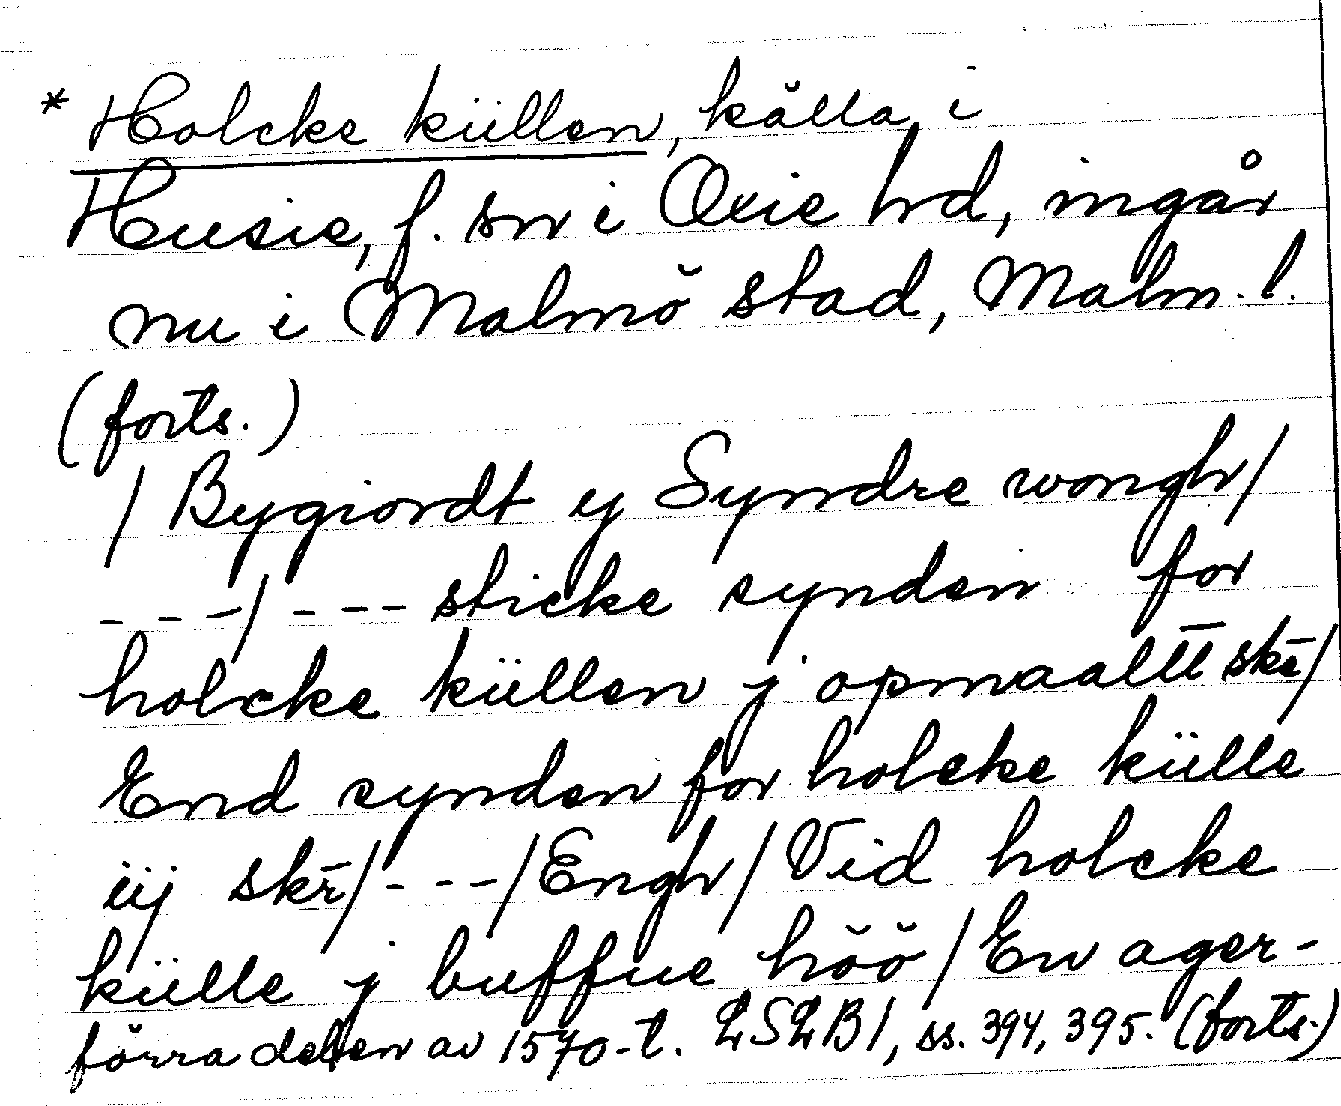 * Holcke küllen, källa i
Husie, f. sn i Oxie hd, ingår
nu i Malmö stad, Malm. l.
(forts.)
/ Bygiordt y Syndre wongh/
- - -/ - - - sticke synden for
holcke küllen j opmaaltt skr̄/
End synden for holcke külle
iij skr̄/- - -/Engh/Vid holcke
külle j buffue höö/En ager-
förra delen av 1570-t. LSLB1, ss. 394, 395. (forts.)